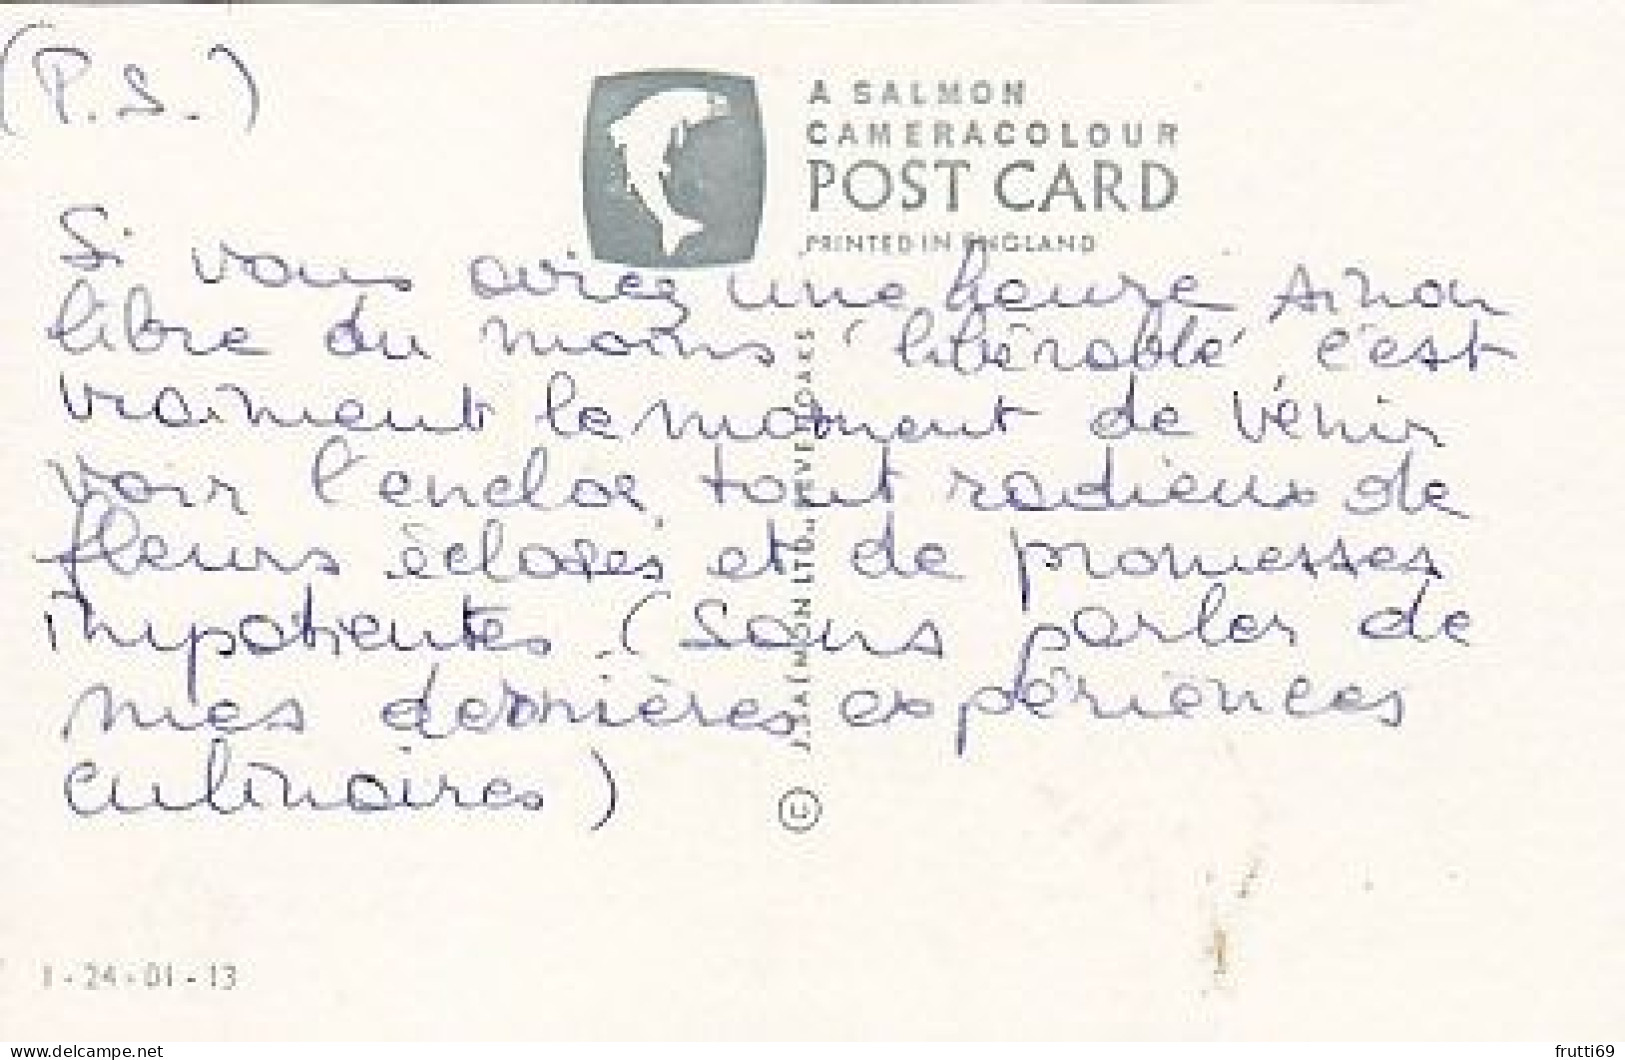 (P.S.)
A SALMON
CAMERACOLOUR
POST CARD
PRINTED IN ENGLAND
Si vous aviez une heure sinon
libre du moins 'libérable' c'est
vraiment le moment de venir
voir l'enclos tout radieux de
fleurs écloses et de promesses
impatientes. (Sans parler de
mes dernières expériences
culinaires)
© J. SALMON LTD., SEVENOAKS
1-24-01-13
delcampe.net
frutti69